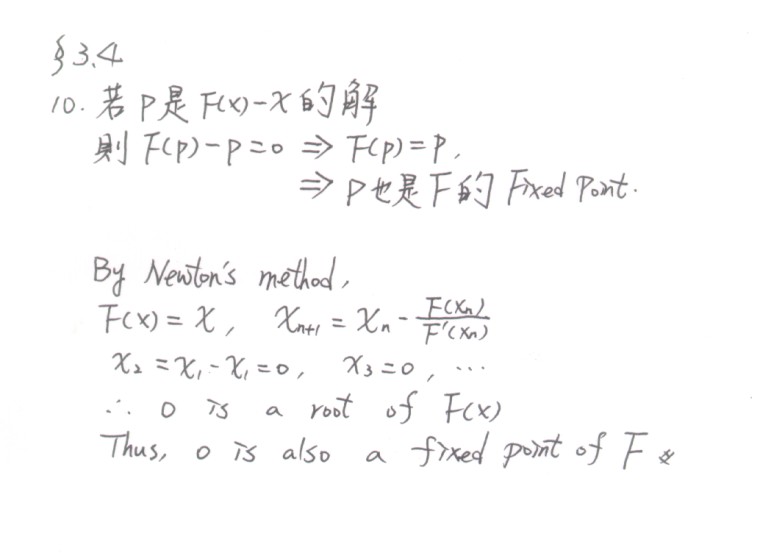 §3.4
10. 若 P是 F(x)-x 的解
則 F(p)-p=0 ⇒ F(p)=p,
⇒ p也是F的 Fixed Point.
By Newton's method,
F(x)=x, xₙ₊₁ = xₙ - F(xₙ)/F'(xₙ)
x₂ = x₁-x₁=0, x₃=0, ⋯
∴ 0 is a root of F(x)
Thus, 0 is also a fixed point of F